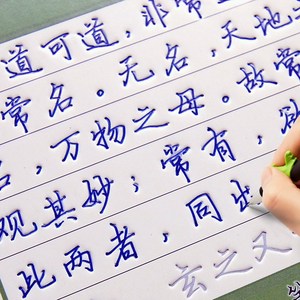 道可道，非常
常名。无名，天地
，万物之母。故常
观其妙；常有，
此两者，同出
玄之又